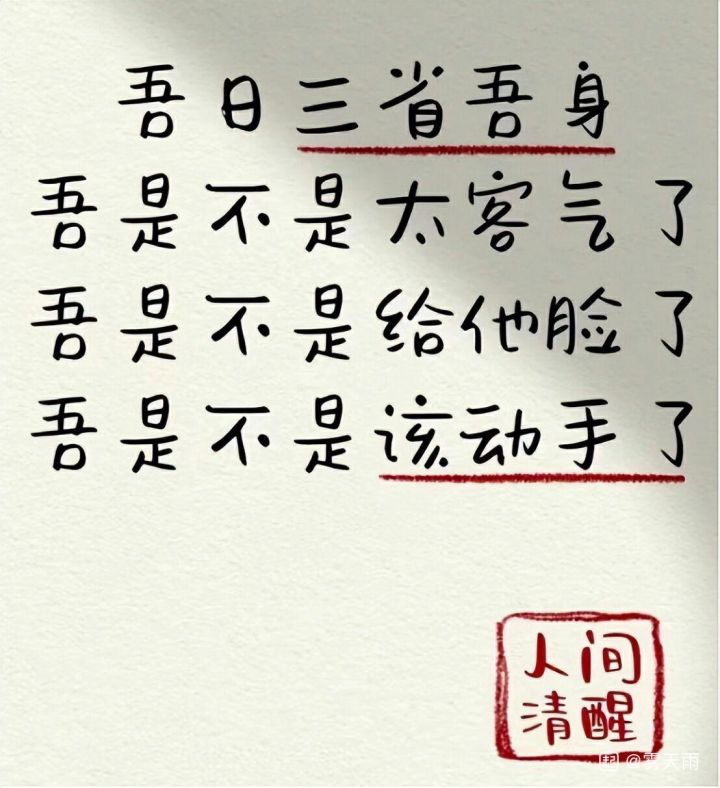 吾日三省吾身
吾是不是太客气了
吾是不是给他脸了
吾是不是该动手了
人间
清醒
@雾天雨